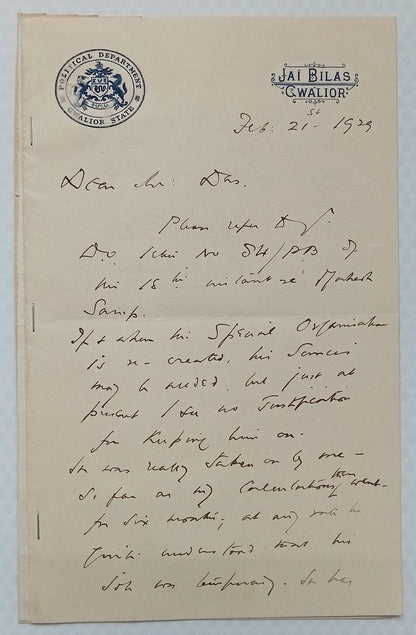 POLITICAL DEPARTMENT
GWALIOR STATE
JAI BILAS
GWALIOR
Feb: 21st 1929
Dear Mr: Das.
Please refer to yr.
D.O. No 54/PB of
the 18th instant re
If & when the Special Organisation
is re-created, his Services
may be needed, but just at
present I see no Justification
for Keeping him on.
He was really taken on by me -
So far as my Calculations then went -
for six months; at any rate he
quite understood that his
job was temporary. He has